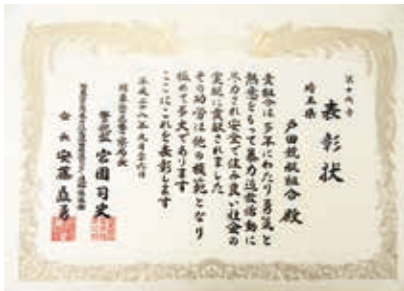 表彰状
埼玉県
戸田競艇組合殿
貴組合は多年にわたり勇気と
熱意をもって暴力追放活動に
尽力され安全で住み良い社会の
実現に貢献されました
その功労は他の模範となり
極めて多大であります
ここにこれを表彰します
平成二十八年
会長 安藤